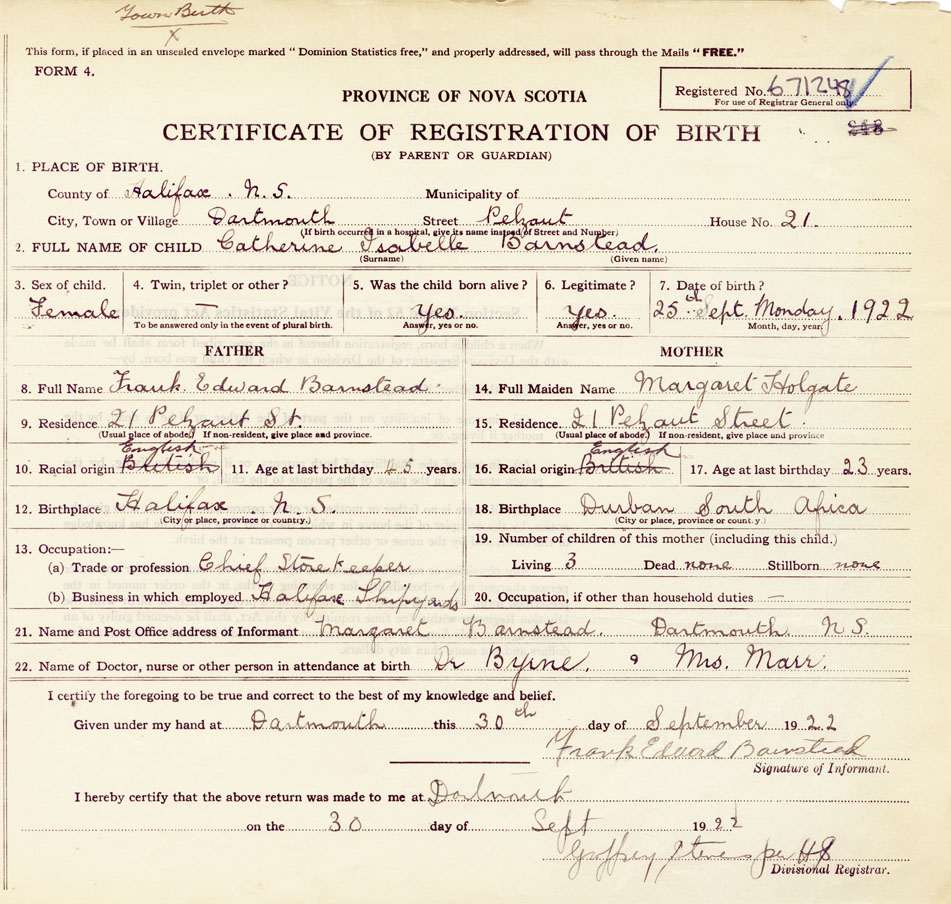 Town Birth
X
This form, if placed in an unsealed envelope marked "Dominion Statistics free," and properly addressed, will pass through the Mails "FREE."
FORM 4.
Registered No. 671248
For use of Registrar General only.
PROVINCE OF NOVA SCOTIA
CERTIFICATE OF REGISTRATION OF BIRTH
(BY PARENT OR GUARDIAN)
1. PLACE OF BIRTH.
County of Halifax. N. S. Municipality of
City, Town or Village Dartmouth Street Pelzant House No. 21.
(If birth occurred in a hospital, give its name instead of Street and Number)
2. FULL NAME OF CHILD Catherine Isabelle Barnstead.
(Surname) (Given name)
3. Sex of child. 4. Twin, triplet or other? 5. Was the child born alive? 6. Legitimate? 7. Date of birth?
Female — Yes. Yes. 25th Sept. Monday. 1922
To be answered only in the event of plural birth. Answer, yes or no. Answer, yes or no. Month, day, year.
FATHER MOTHER
8. Full Name Frank Edward Barnstead 14. Full Maiden Name Margaret Holgate
9. Residence 21 Pelzant St. 15. Residence. 21 Pelzant Street
(Usual place of abode.) If non-resident, give place and province. (Usual place of abode.) If non-resident, give place and province
English English
10. Racial origin British 11. Age at last birthday 45 years. 16. Racial origin British 17. Age at last birthday 23 years.
12. Birthplace Halifax. N. S. 18. Birthplace Durban South Africa
(City or place, province or country.) (City or place, province or country.)
13. Occupation:— 19. Number of children of this mother (including this child.)
(a) Trade or profession Chief Storekeeper Living 3 Dead none Stillborn none
(b) Business in which employed Halifax Shipyards 20. Occupation, if other than household duties —
21. Name and Post Office address of Informant Margaret Barnstead. Dartmouth. N S.
22. Name of Doctor, nurse or other person in attendance at birth Dr Byrne, Mrs. Marr.
I certify the foregoing to be true and correct to the best of my knowledge and belief.
Given under my hand at Dartmouth this 30th day of September 1922
Frank Edward Barnstead
Signature of Informant.
I hereby certify that the above return was made to me at Dartmouth
on the 30 day of Sept 1922
Geoffrey Stevens per HS
Divisional Registrar.